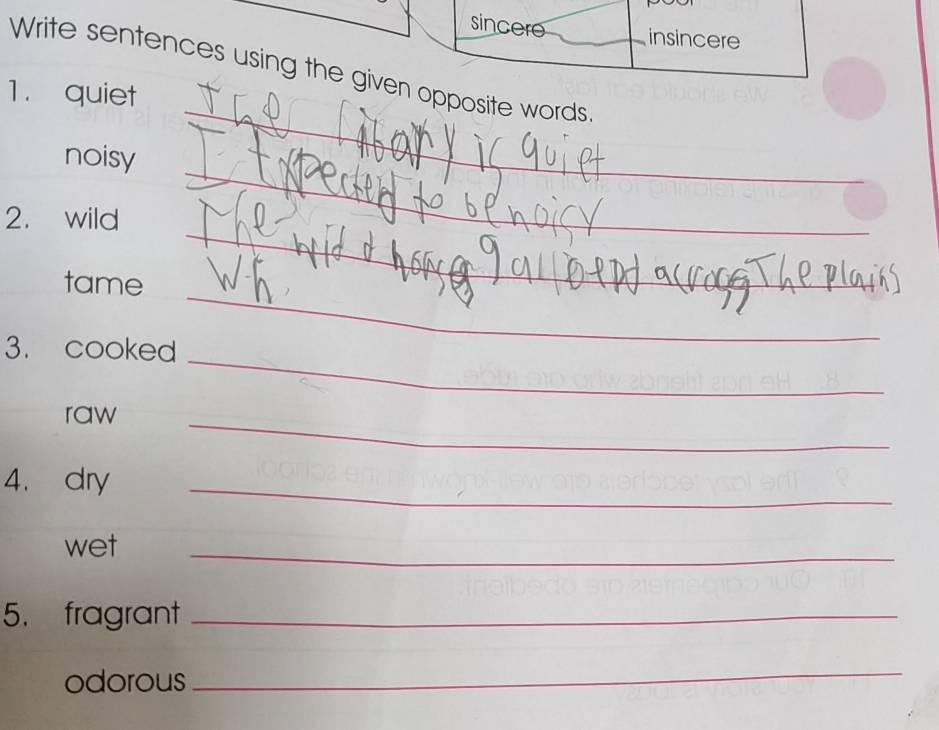 sincere
insincere
Write sentences using the given opposite words.
1. quiet The library is quiet
noisy I Expected to be noisy
2. wild The wild horse galloepd across The plains
tame Wh
3. cooked
raw
4. dry
wet
5. fragrant
odorous